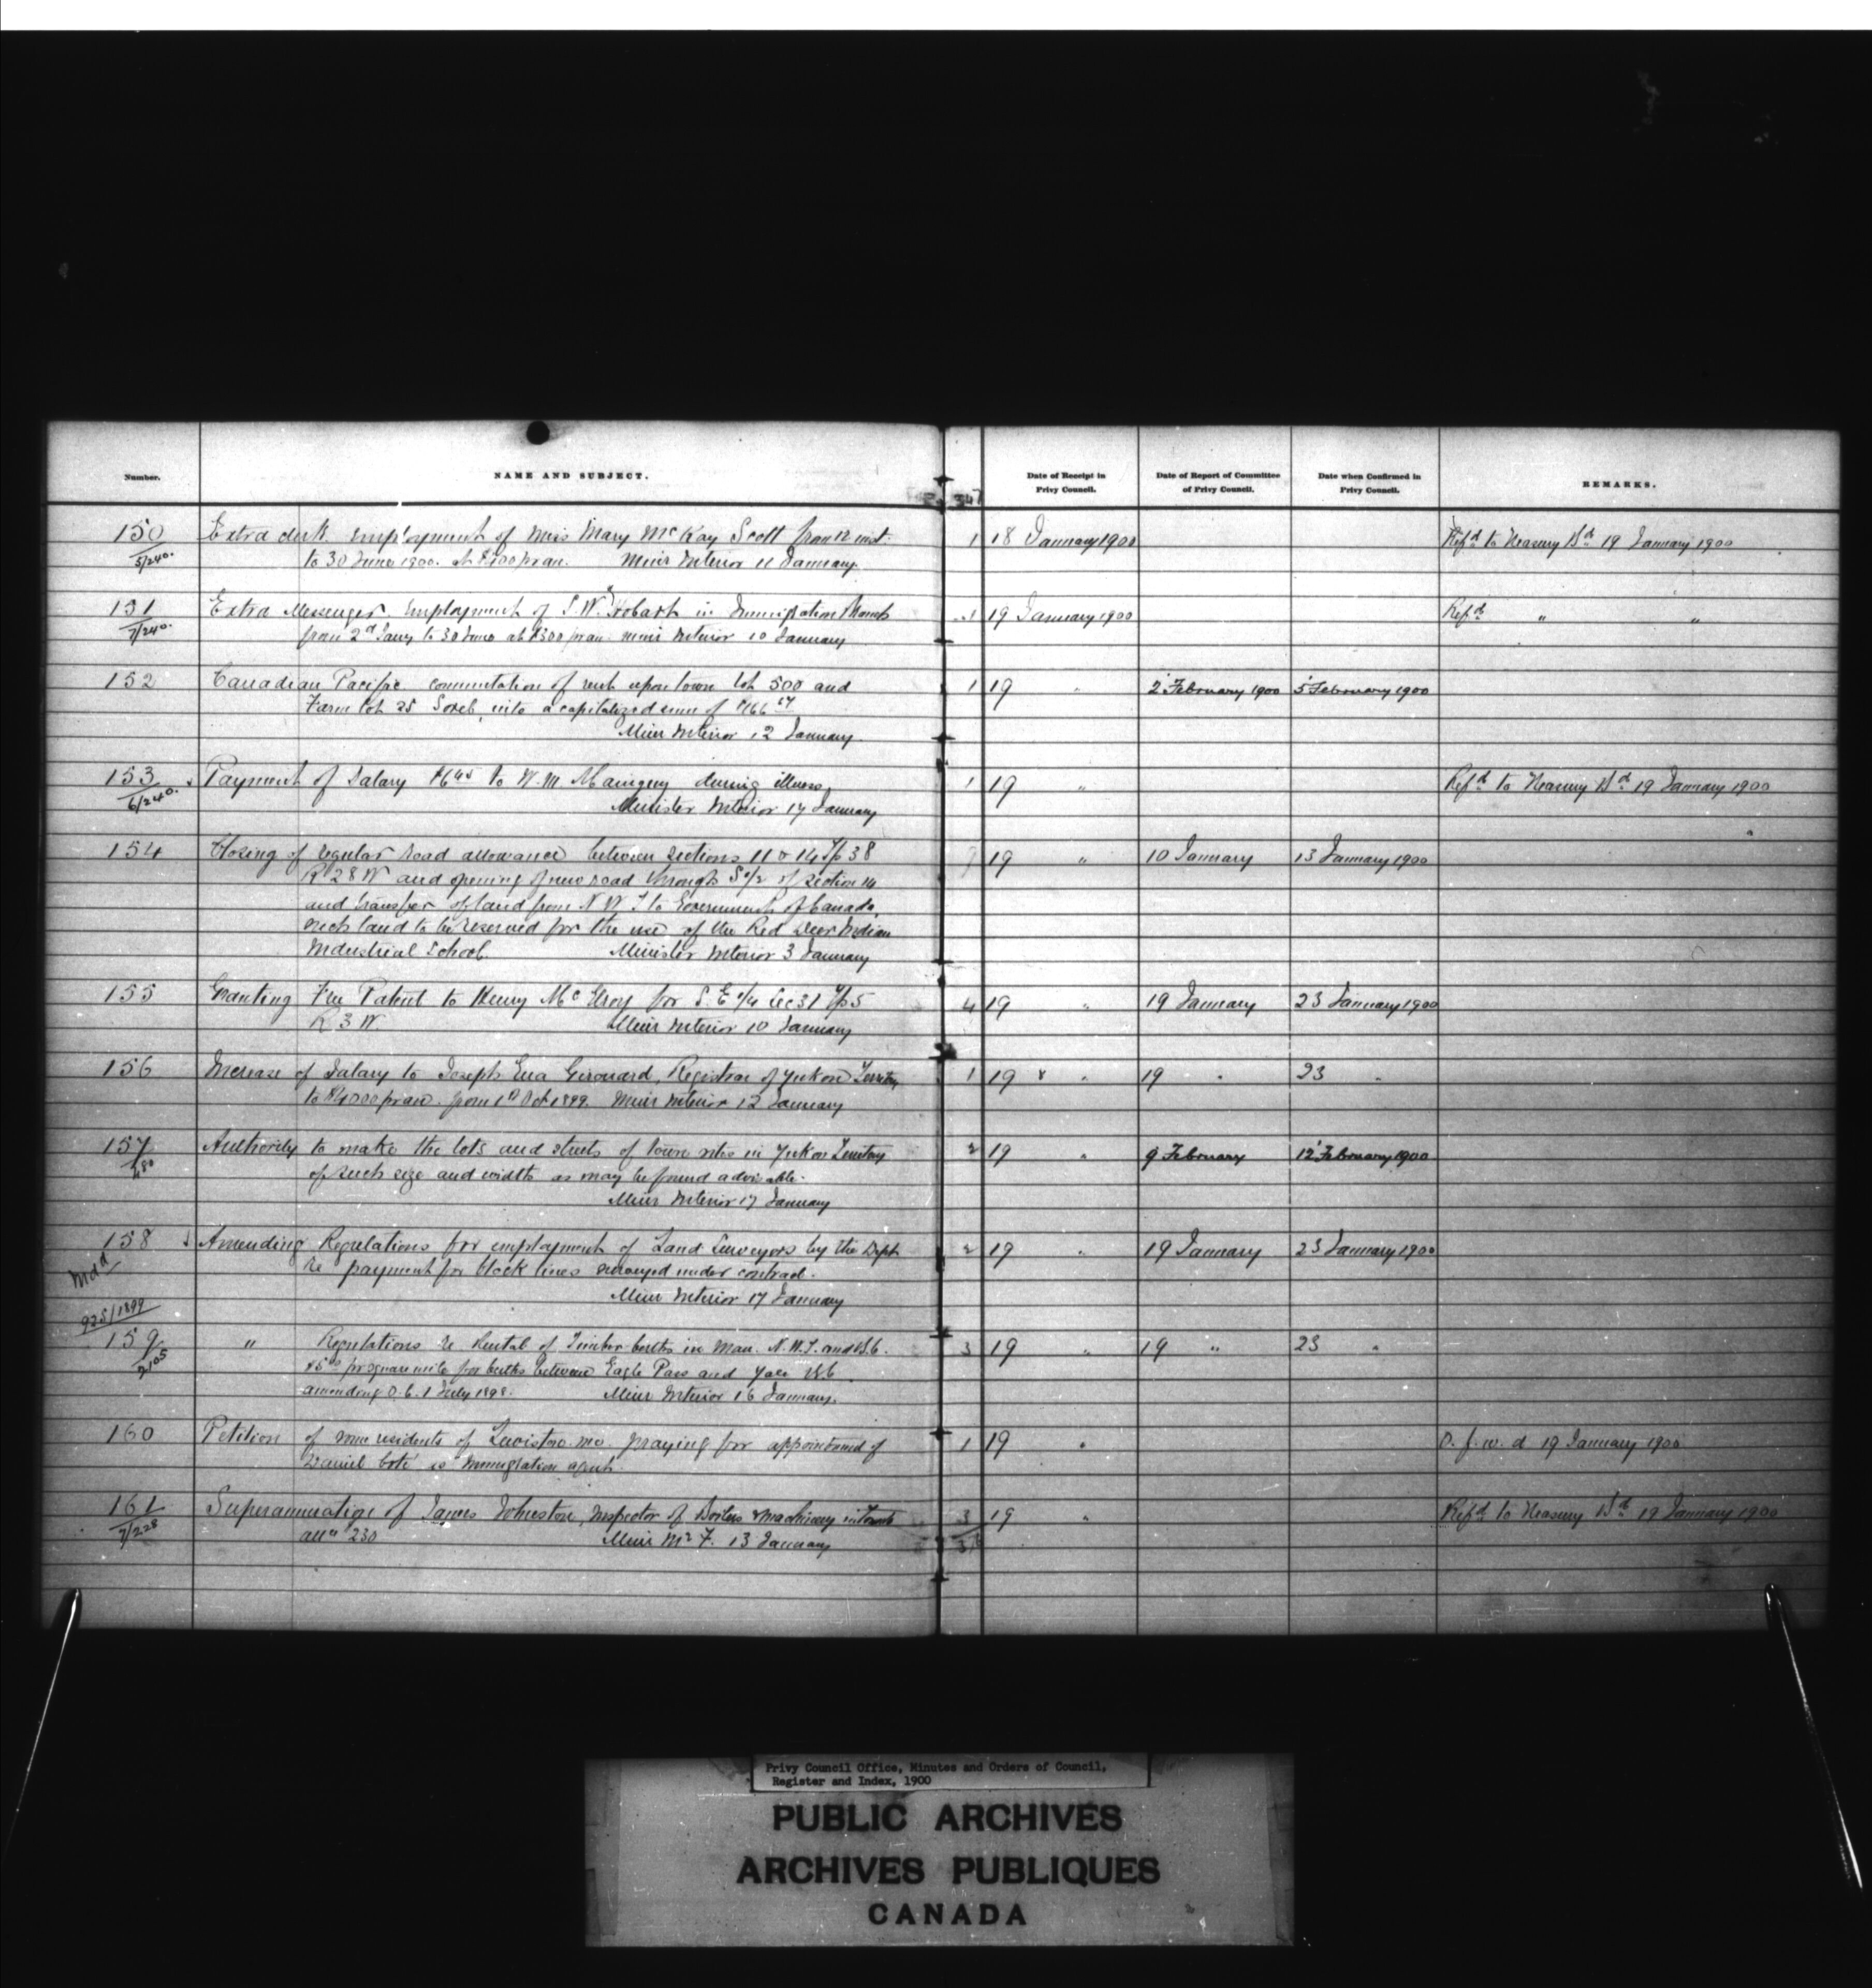 Number.
NAME AND SUBJECT.
347
Date of Receipt in
Privy Council.
Date of Report of Committee
of Privy Council.
Date when Confirmed in
Privy Council.
REMARKS.
150 Extra clerk employment of Miss Mary McKay Scott from 12 inst. 1 18 January 1900 Refd to Treasury Bd 19 January 1900
5/240. to 30 June 1900. at $400 pr an. Minr Interior 11 January
151 Extra Messenger. Employment of S. W. Hobart in Immigration Branch 1 19 January 1900 Refd " "
7/240. from 2nd Jany to 30 June at $300 pr an. Minr Interior 10 January
152 Canadian Pacific commutation of rent upon town lot 500 and 1 19 " 2 February 1900 5 February 1900
Farm lot 25 Sorel, into a capitalized sum of $166 67
Minr Interior 12 January
153 Payment of Salary to W. M. Maingny during illness. 1 19 " Refd to Treasury Bd 19 January 1900
6/240. Minister Interior 17 January
154 Closing of regular road allowance between sections 11 & 14 Tp 38 19 " 10 January 13 January 1900
R 28 W and opening of new road through S 1/2 of section 14
and transfer of land from N W T to Government of Canada,
such land to be reserved for the use of the Red Deer Indian
Industrial School. Minister Interior 3 January
155 Granting Free Patent to Henry McElroy for S. E 1/4 Sec 31 Tp 5 4 19 " 19 January 23 January 1900
R 3 W. Minr Interior 10 January
156 Increase of Salary to Joseph Ena Girouard, Registrar of Yukon Territory 1 19 " 19 " 23 "
to $4000 pr an. from 1st Oct 1899. Minr Interior 12 January
157 Authority to make the lots and streets of town sites in Yukon Territory 2 19 " 9 February 12 February 1900
480 of such size and width as may be found advisable.
Minr Interior 17 January
158 Amending Regulations for employment of Land Surveyors by the Dept 2 19 " 19 January 23 January 1900
Mdd re payment for block lines surveyed under contract.
Minr Interior 17 January
925/1899
159 " Regulations re Rental of Timber berths in Man. N.W.T. and B.C. 3 19 " 19 " 23 "
2105 $5 00 pr square mile for berths between Eagle Pass and Yale B.C.
amending O.C. 1 July 1898. Minr Interior 16 January.
160 Petition of some residents of Lewiston Me praying for appointment of 1 19 " O. f. w. d 19 January 1900
Daniel Coté as Immigration agent.
161 Superannuation of James Johnston, Inspector of Boilers & machinery in Toronto 3 19 " Refd to Treasury Bd 19 January 1900
7/228 allce $230 Minr M & F. 13 January
Privy Council Office, Minutes and Orders of Council,
Register and Index, 1900
PUBLIC ARCHIVES
ARCHIVES PUBLIQUES
CANADA